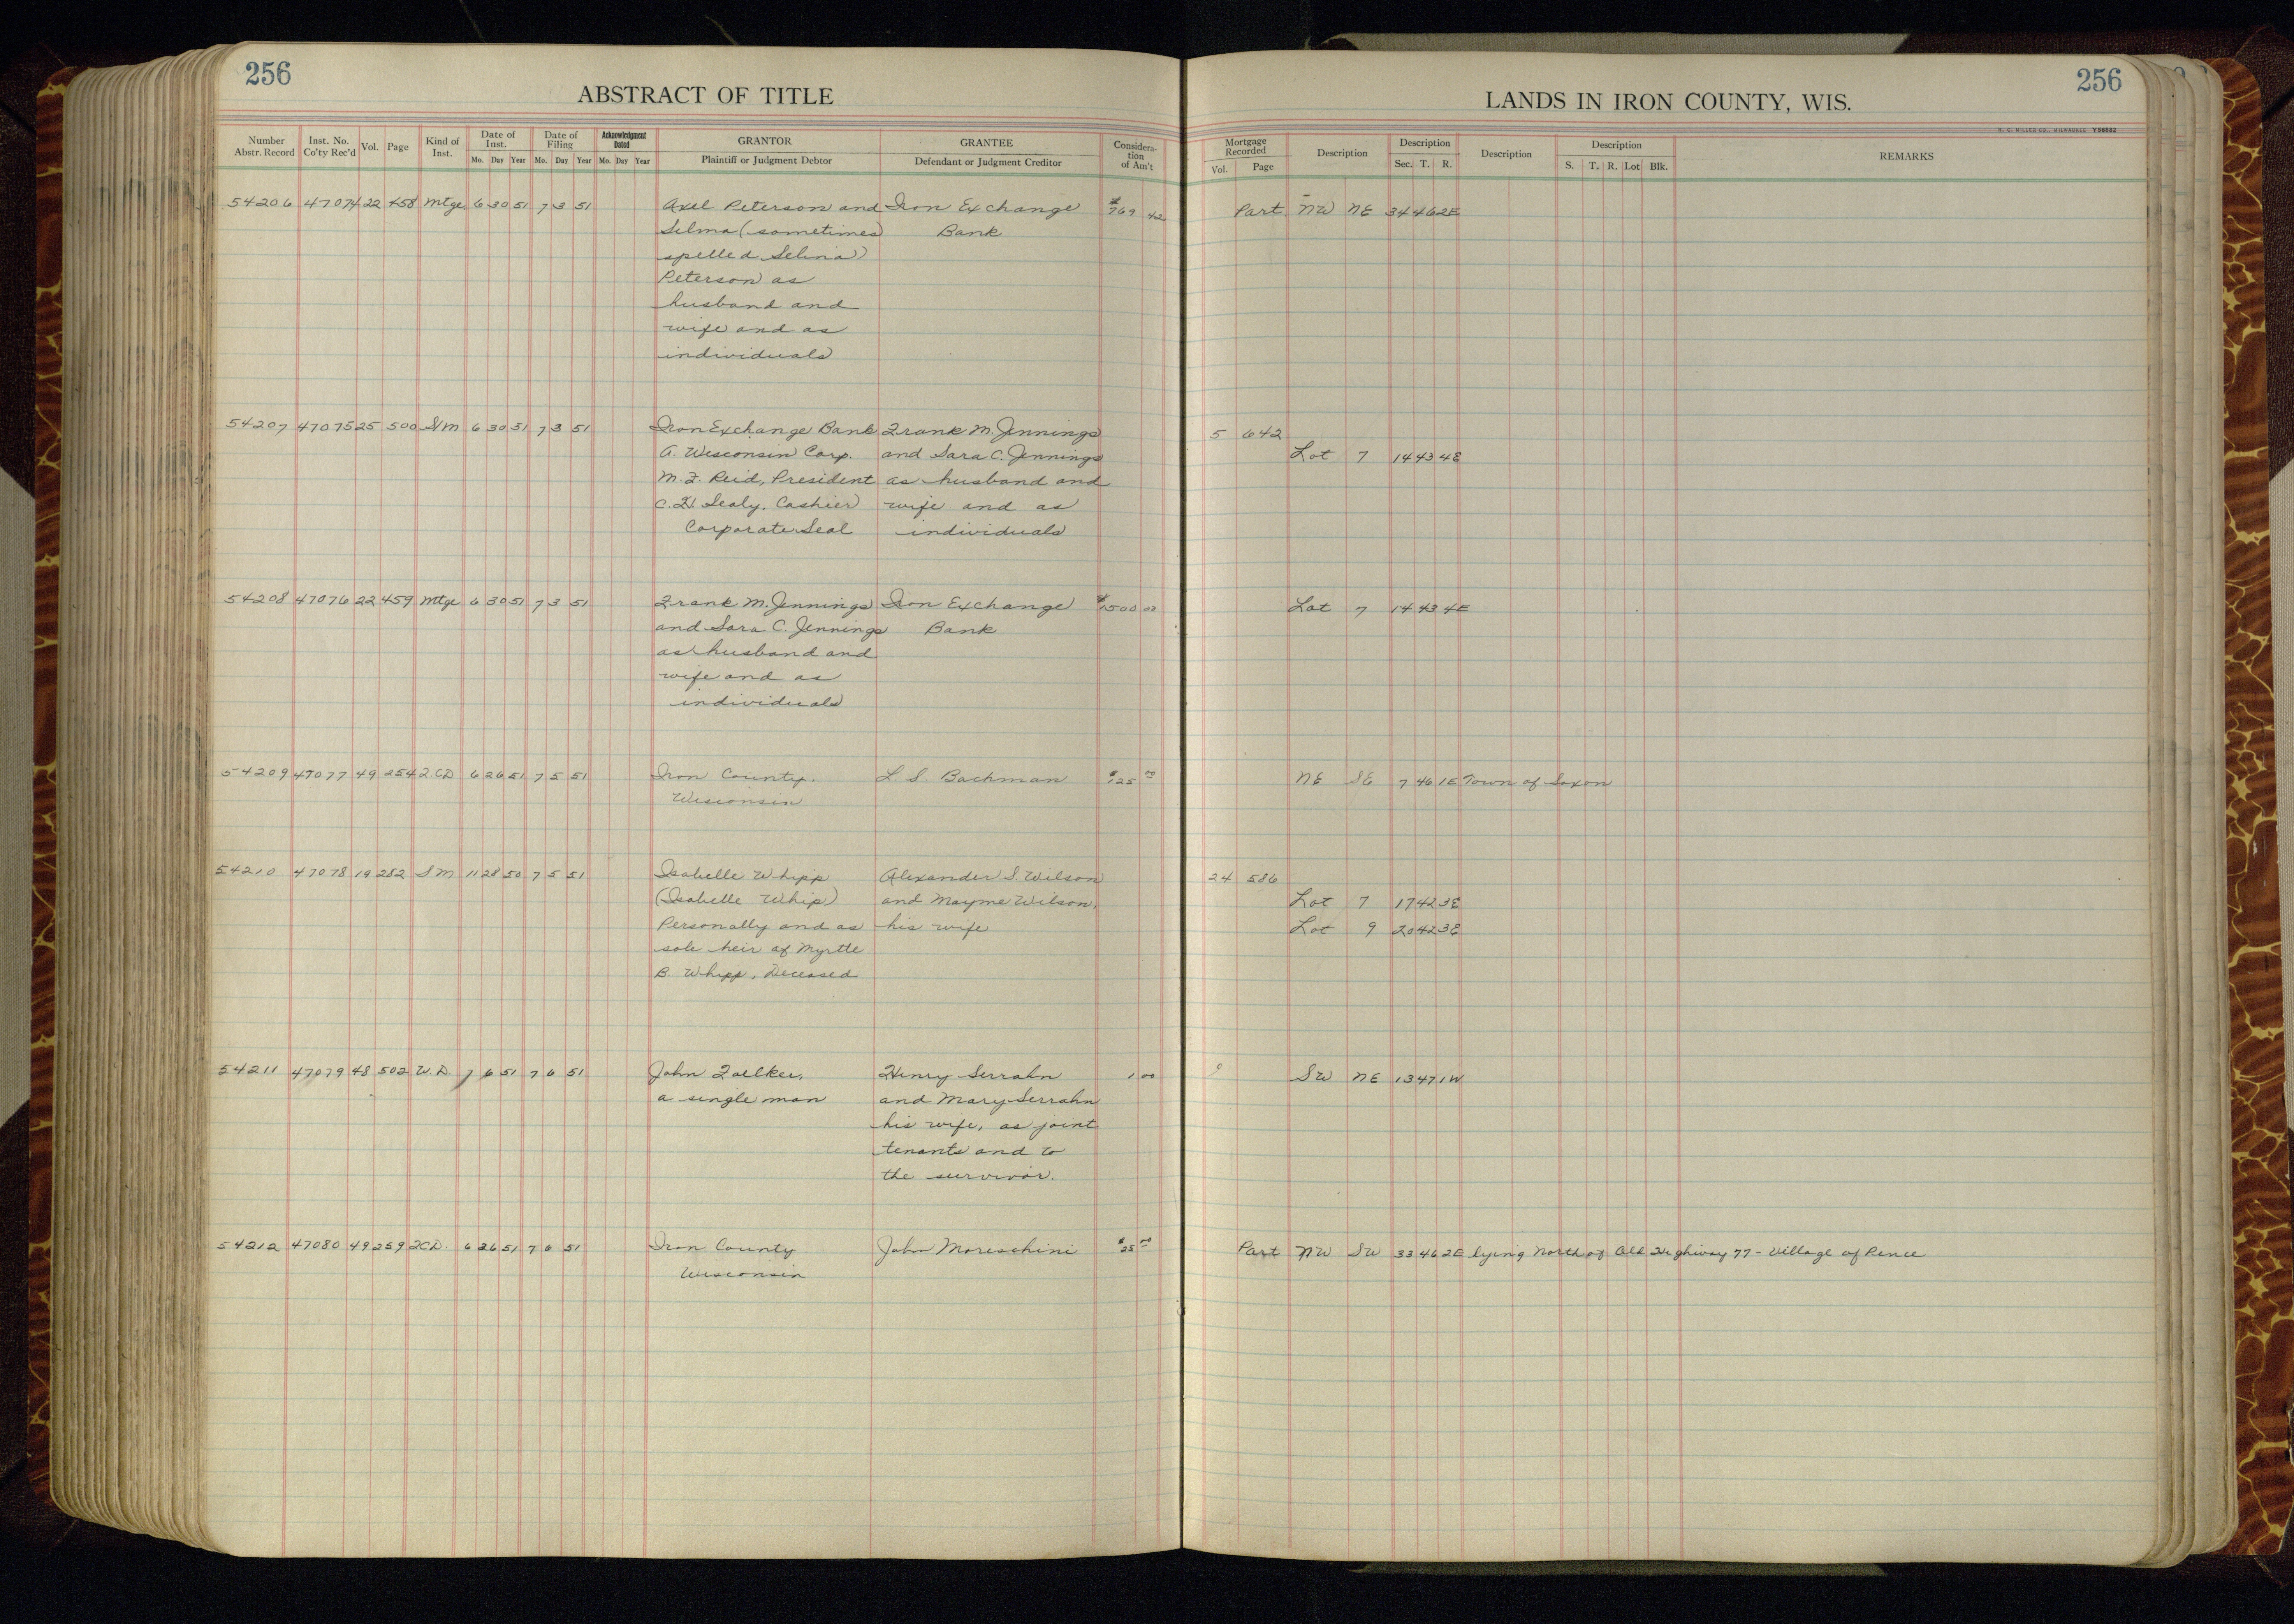 256
ABSTRACT OF TITLE
Number Abstr. Record Inst. No. Co'ty Rec'd Vol. Page Kind of Inst. Date of Inst. Mo. Day Year Date of Filing Mo. Day Year Acknowledgment Dated Mo. Day Year GRANTOR Plaintiff or Judgment Debtor GRANTEE Defendant or Judgment Creditor Considera-tion of Am't
54206 47074 22 458 Mtge 6 30 51 7 3 51 Axel Peterson and Iron Exchange $769 42
Selma (sometimes Bank
spelled Selina)
Peterson as
husband and
wife and as
individuals
54207 47075 25 500 S/M 6 30 51 7 3 51 Iron Exchange Bank Frank M. Jennings
A. Wisconsin Corp. and Sara C. Jennings
M.F. Reid, President as husband and
C.H. Sealy, Cashier wife and as
Corporate Seal individuals
54208 47076 22 459 Mtge 6 30 51 7 3 51 Frank M. Jennings Iron Exchange $1500 00
and Sara C. Jennings Bank
as husband and
wife and as
individuals
54209 47077 49 254 2.CD 6 26 51 7 5 51 Iron County. L. S. Bachman $125 00
Wisconsin
54210 47078 19 282 S M 11 28 50 7 5 51 Isabelle Whipp Alexander S. Wilson
(Isabelle Whip) and Mayme Wilson,
Personally and as his wife
sole heir of Myrtle
B. Whipp, Deceased
54211 47079 48 502 W.D. 7 6 51 7 6 51 John Foelker, Henry Serrahn 1 00
a single man and Mary Serrahn
his wife, as joint
tenants and to
the survivor.
54212 47080 49 259 2CD. 6 26 51 7 6 51 Iron County John Moreschini $25 00
Wisconsin
256
LANDS IN IRON COUNTY, WIS.
H. C. MILLER CO., MILWAUKEE Y56882
Mortgage Recorded Vol. Page Description Description Sec. T. R. Description Description S. T. R. Lot Blk. REMARKS
Part NW NE 34 46 2E
5 642
Lot 7 14 43 4E
Lot 7 14 43 4E
NE SE 7 46 1E Town of Saxon
24 586
Lot 7 17 42 3E
Lot 9 20 42 3E
SW NE 13 47 1W
Part NW SW 33 46 2E lying North of Old Highway 77 - Village of Pence